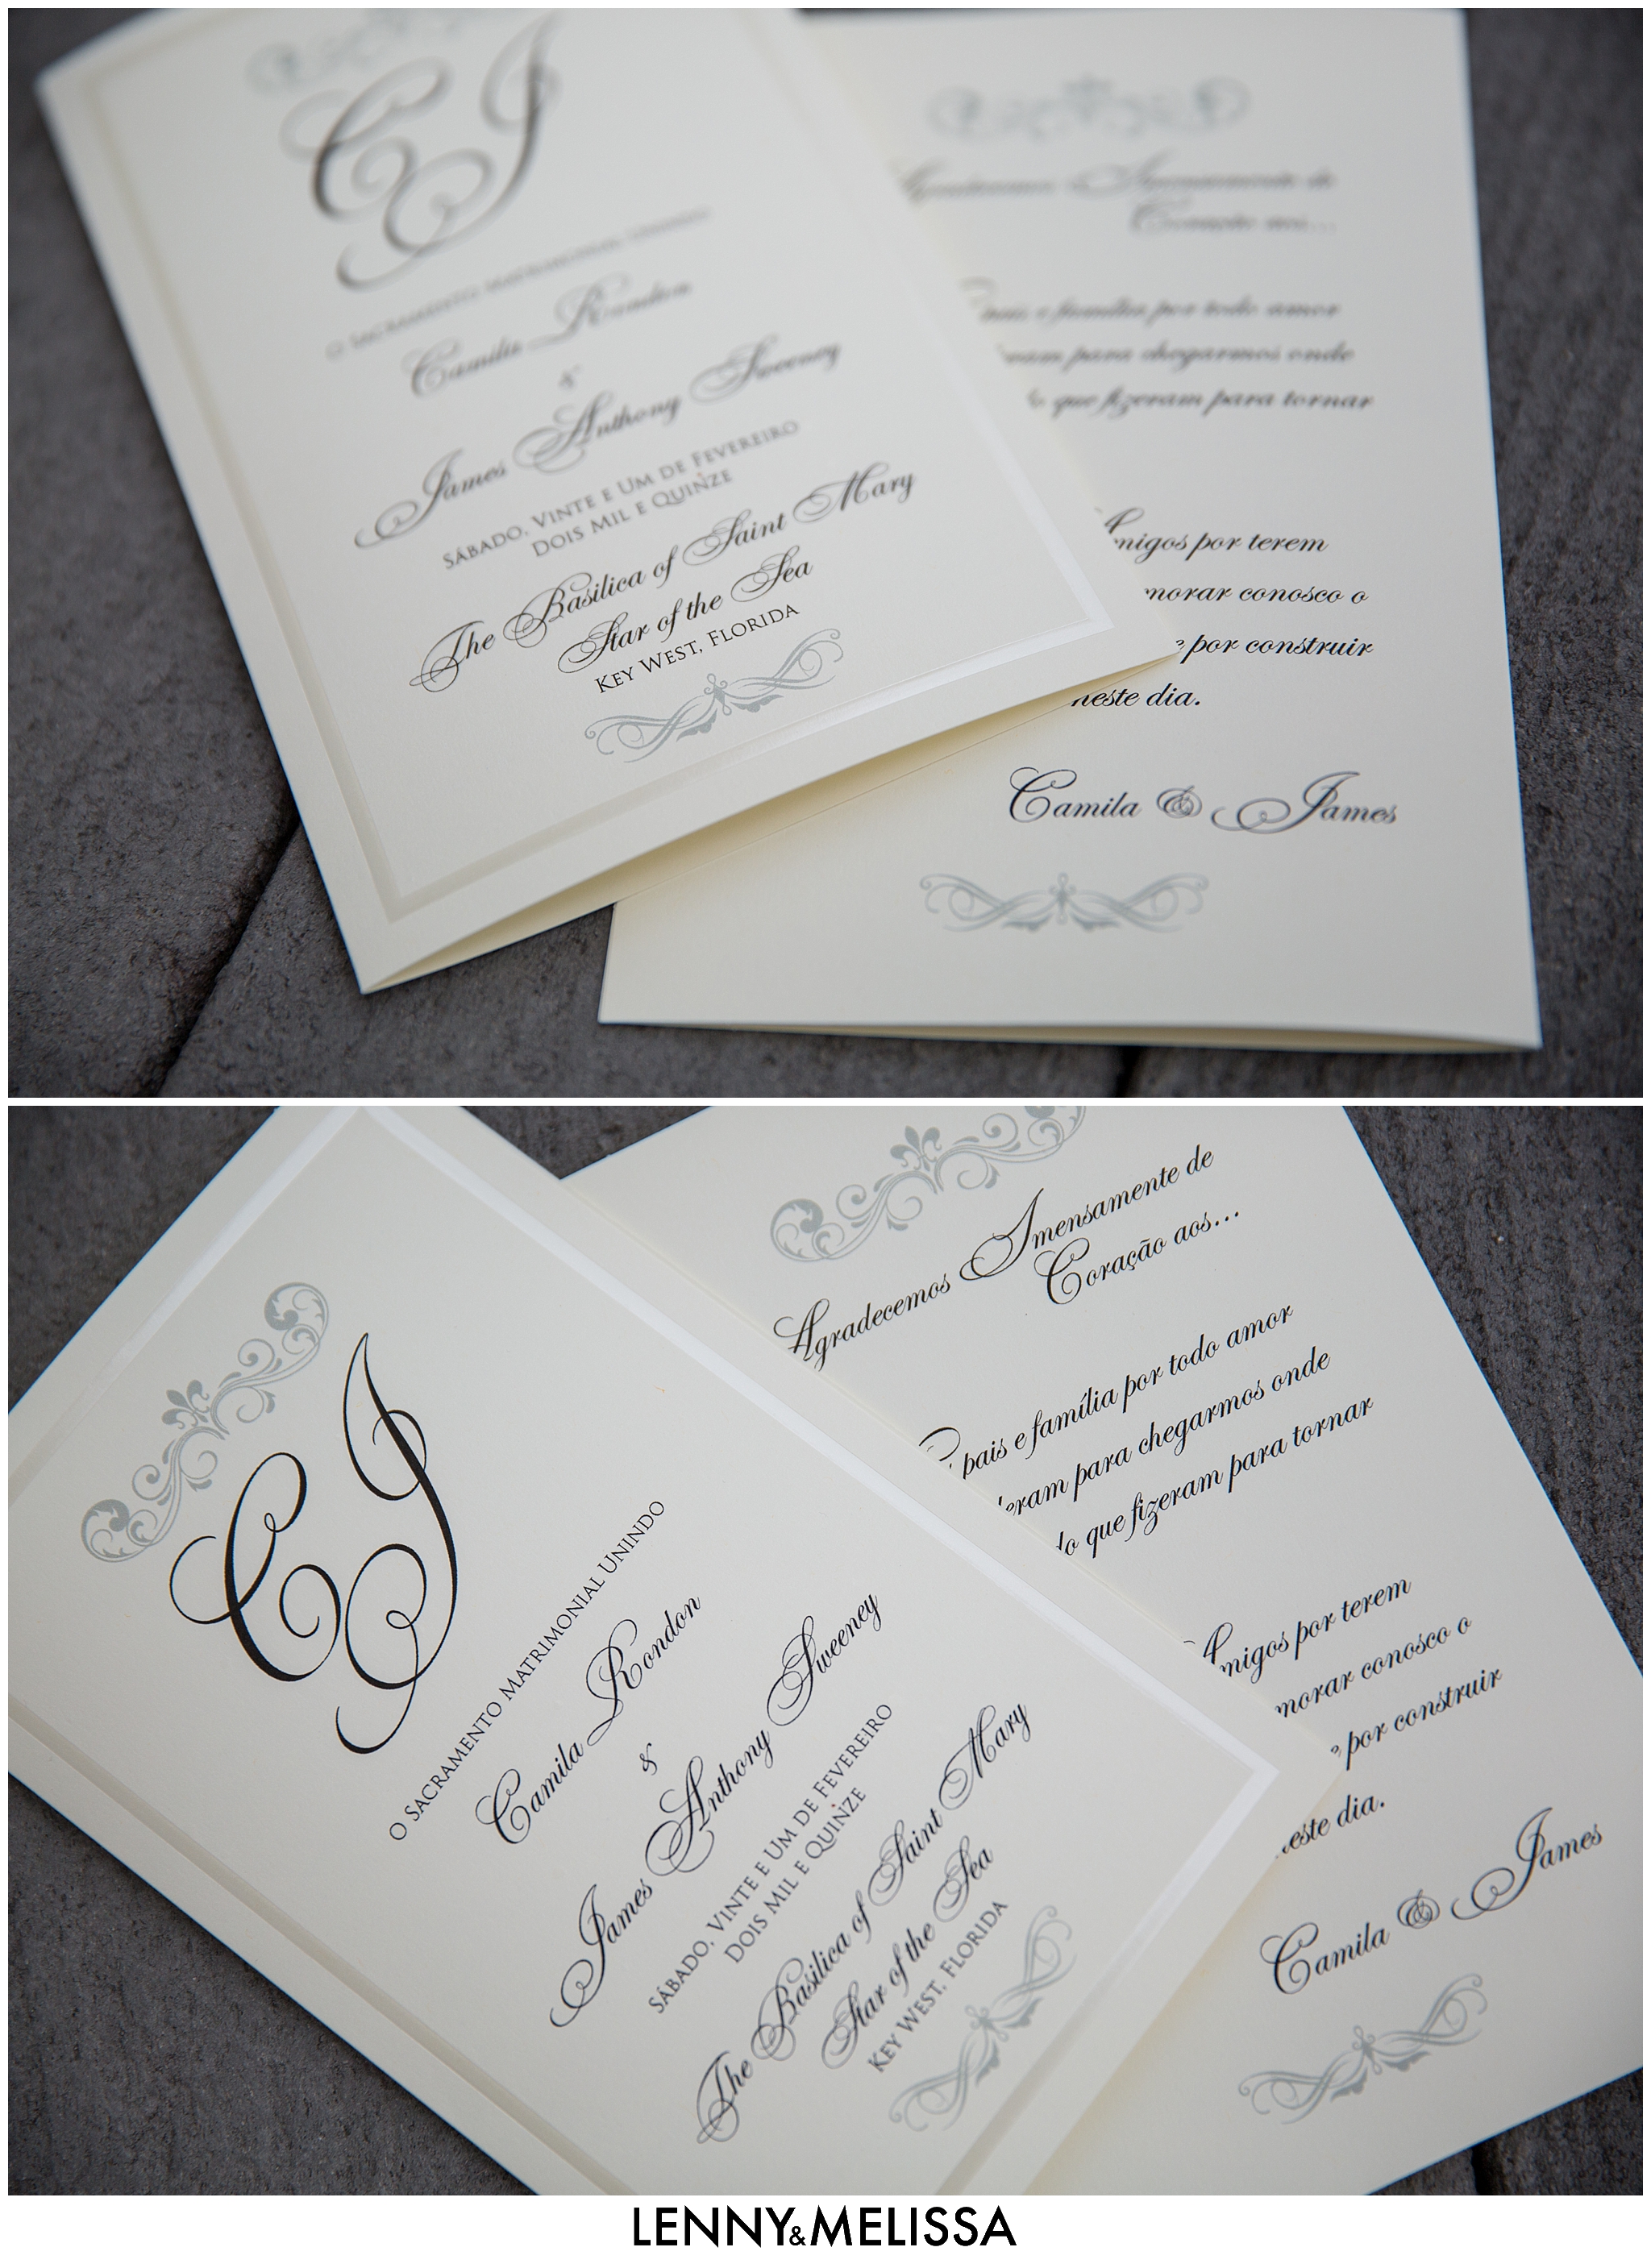 CJ
O Sacramento Matrimonial Unindo
Camila Rondon
&
James Anthony Sweeney
Sábado, Vinte e Um de Fevereiro
Dois Mil e Quinze
The Basilica of Saint Mary
Star of the Sea
Key West, Florida
Coração aos...
pais e família por todo amor
para chegarmos onde
que fizeram para tornar
Amigos por terem
conosco o
por construir
neste dia.
Camila & James
CJ
O Sacramento Matrimonial Unindo
Camila Rondon
&
James Anthony Sweeney
Sábado, Vinte e Um de Fevereiro
Dois Mil e Quinze
The Basilica of Saint Mary
Star of the Sea
Key West, Florida
Agradecemos Imensamente de
Coração aos...
pais e família por todo amor
para chegarmos onde
que fizeram para tornar
Amigos por terem
conosco o
por construir
dia.
Camila & James
LENNY&MELISSA